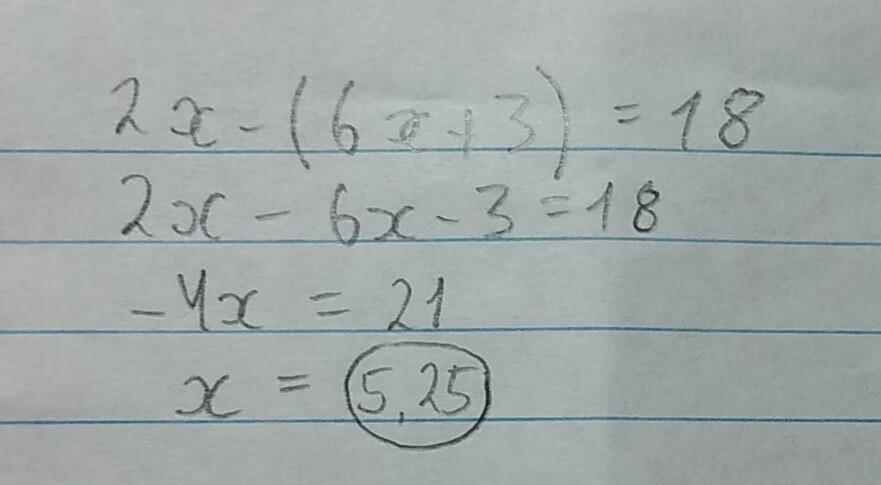 2x - (6x + 3) = 18
2x - 6x - 3 = 18
-4x = 21
x = 5,25